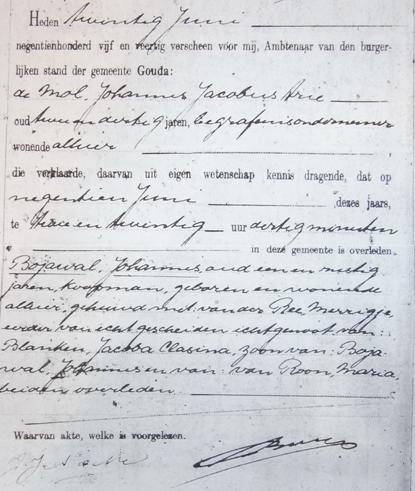 Heden twintig Juni
negentienhonderd vijf en veertig verscheen voor mij, Ambtenaar van den burger-
lijken stand der gemeente Gouda:
de Mol, Johannes Jacobus Arie
oud twee en dertig jaren, begrafenisondernemer
wonende alhier
die verklaarde, daarvan uit eigen wetenschap kennis dragende, dat op
negentien Juni ,dezes jaars,
te twee en twintig uur dertig minuten
in deze gemeente is overleden
Bojawal, Johannes, oud een en zestig
jaren, koopman, geboren en wonende
alhier, gehuwd met van der Ree, Merrigje,
eerder van echt gescheiden echtgenoot van:
Blanken, Jacoba Clasina, zoon van: Boja-
wal, Johannes en van: van Roon, Maria,
beiden overleden.
Waarvan akte, welke is voorgelezen.